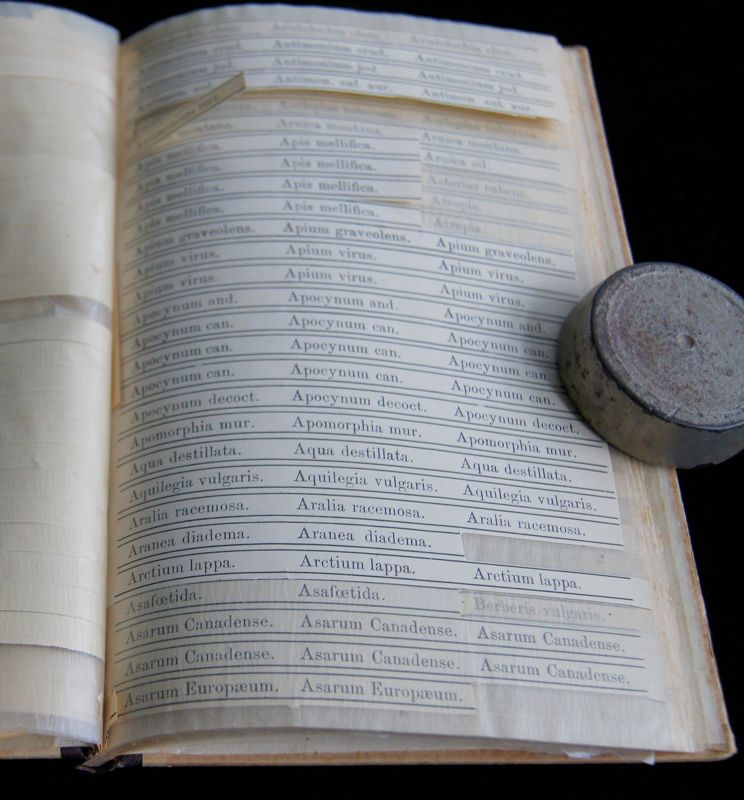 Antimonium crud. Antimonium crud. Antimonium crud.
Antimonium jod. Antimonium jod Antimonium jod.
Antimon. sul. aur. Antimon. sul. aur.
Arnica montana. Arnica montana.
Apis mellifica. Apis mellifica. Arnica rad.
Apis mellifica. Apis mellifica. Asterias rubens
Apis mellifica. Apis mellifica. Atropia.
Apis mellifica. Apis mellifica. Atropia.
Apium graveolens. Apium graveolens. Apium graveolens.
Apium virus. Apium virus. Apium virus.
Apium virus. Apium virus. Apium virus.
Apocynum and. Apocynum and. Apocynum and.
Apocynum can. Apocynum can. Apocynum can.
Apocynum can. Apocynum can. Apocynum can.
Apocynum can. Apocynum can. Apocynum can.
Apocynum decoct. Apocynum decoct. Apocynum decoct.
Apomorphia mur. Apomorphia mur. Apomorphia mur.
Aqua destillata. Aqua destillata. Aqua destillata.
Aquilegia vulgaris. Aquilegia vulgaris. Aquilegia vulgaris.
Aralia racemosa. Aralia racemosa. Aralia racemosa.
Aranea diadema. Aranea diadema.
Arctium lappa. Arctium lappa. Arctium lappa.
Asafœtida. Asafœtida. Berberis vulgaris.
Asarum Canadense. Asarum Canadense. Asarum Canadense.
Asarum Canadense. Asarum Canadense. Asarum Canadense.
Asarum Europæum. Asarum Europæum.